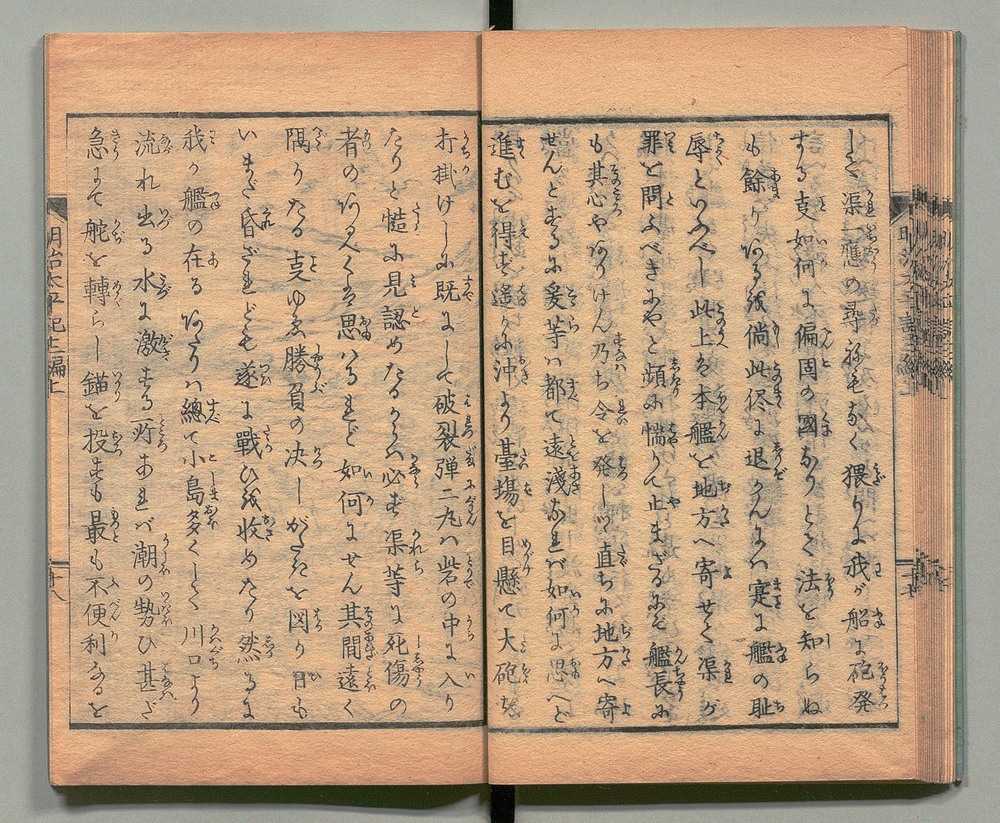 しき渠應の尋祢もなく猥りに我ガ船に砲発
する支如何に偏固の國なりとて法を知らぬ
も餘ゲある成倘此侭に退かんには寔に艦の耻
辱といふべし此上は本艦を地方へ寄せて渠ガ
罪を問ふべきにやと頻に惴りて止まざるにぞ艦長に
も其心やありけん乃ち令を発しツヽ直ちに地方へ寄
せんとするに爰等ハ都て遠淺なれバ如何に思へど
進むを得ず遙かに沖より臺場を目懸て大砲を
打掛けしに既にして破裂弾二丸ハ砦の中に入り
たりと慥に見認めたるからハ必ず渠等に死傷の
者のあるべくは思ハるれど如何にせん其間遠く
隔りたる支ゆゑ勝負の决しがたきを図り日も
いまだ昏ざれども遂に戰ひを收めたり然るに
我ガ艦の在るあたりハ總て小島多くして川口より
流れ出る水に激する所あれバ潮の勢ひ甚だ
急にて舵を轉らし錨を投ずも最も不便利なるを
明治太平記七編上